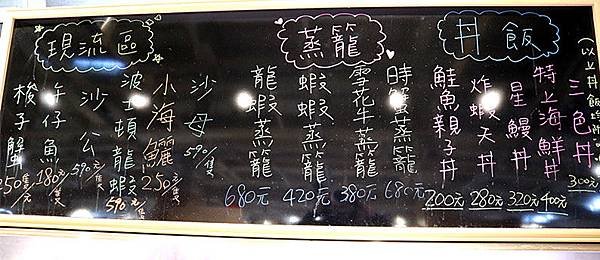 (以上丼飯均附
丼飯
三色丼 300元
特上海鮮丼 400元
星鰻丼 320元
炸蝦天丼 280元
鮭魚親子丼 200元
蒸籠
時蟹蒸籠 680元
雪花牛蒸籠 380元
蝦蝦蒸籠 420元
龍蝦蒸籠 680元
現流區
沙母 590元/隻
小海鱺 250元/隻
波士頓龍蝦 590元/隻
沙公 590元/隻
午仔魚 180元/隻
梭子蟹 250元/隻